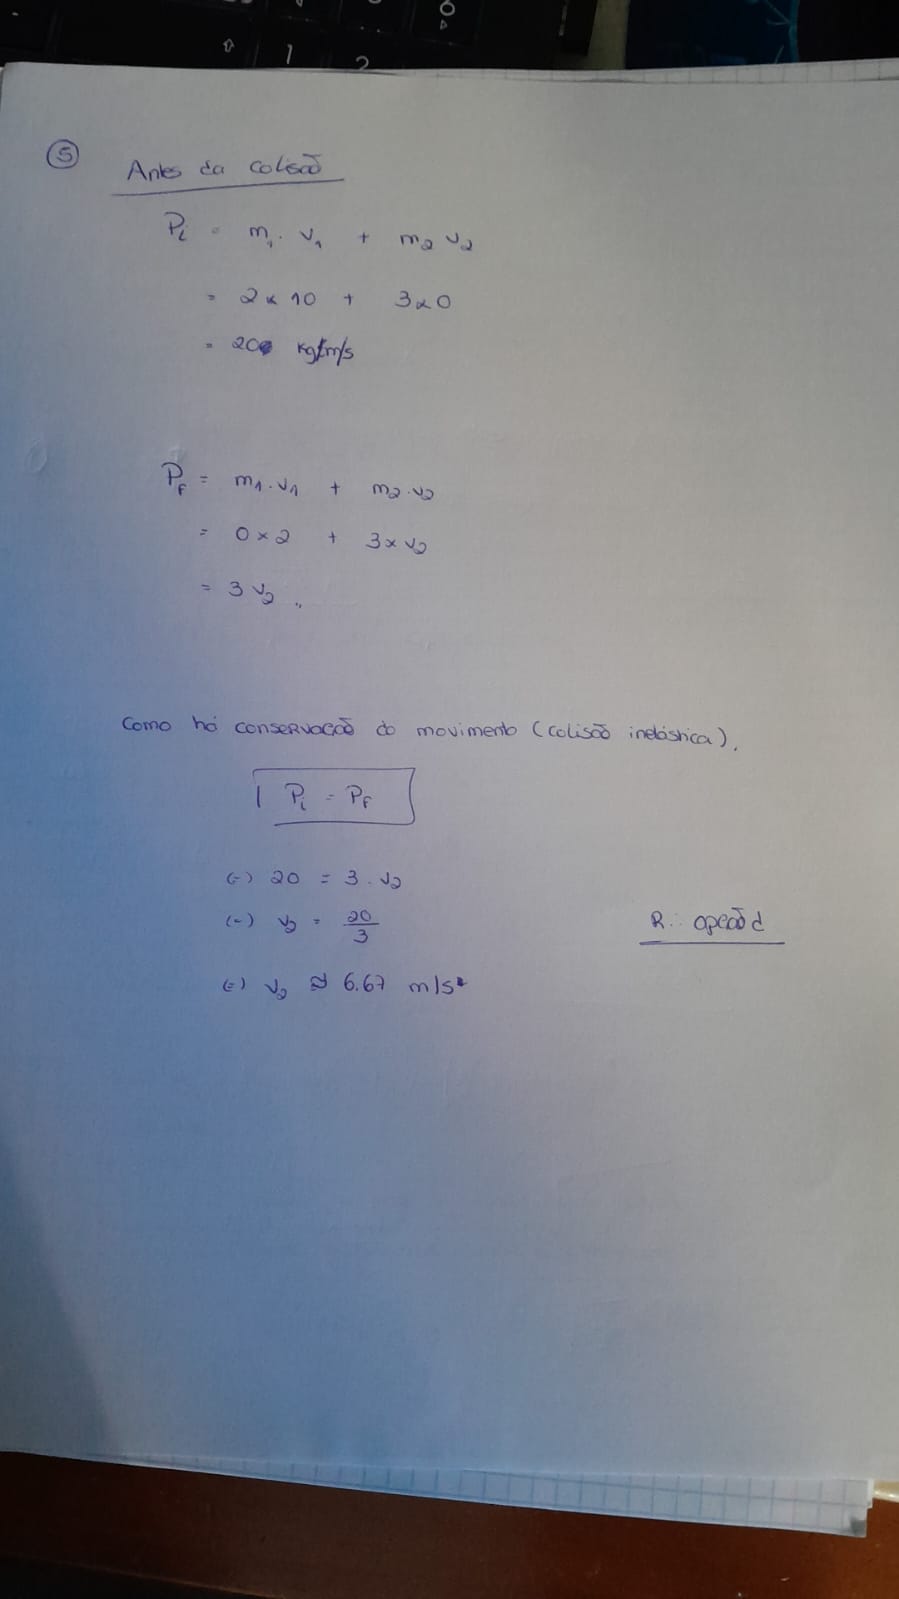 5
Antes da colisão
Pi = m1. v1 + m2 v2
= 2 x 10 + 3x0
= 20 kg/m/s
Pf = m1.v1 + m2.v2
= 0 x 2 + 3 x v2
= 3 v2 ,,
Como há conservação do movimento (colisão inelástica),
Pi = Pf
(=) 20 = 3 . v2
(=) v2 = 20/3
R: opção d
(=) v2 ≈ 6.67 m/s